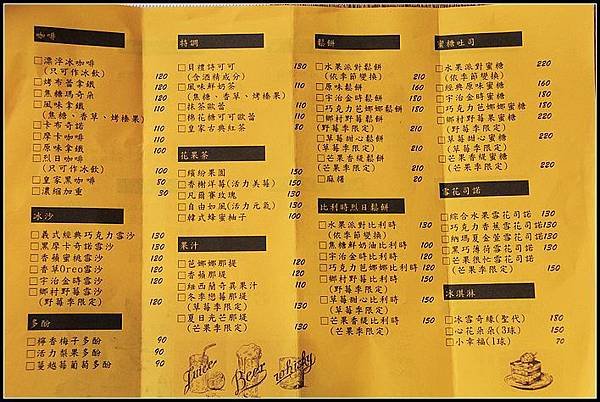 咖啡
□漂浮冰咖啡
(只可作冰飲) 120
□烤布蕾拿鐵 120
□焦糖瑪奇朵 110
□風味拿鐵 110
(焦糖、香草、烤榛果)
□卡布奇諾 100
□摩卡咖啡 100
□原味拿鐵 100
□烈日咖啡
(只可作冰飲)
□皇家黑咖啡
□濃縮加重 30
冰沙
□義式經典巧克力雪沙 130
□黑摩卡奇諾雪沙 130
□香蘋蜜桃雪沙 120
□香草Oreo雪沙 120
□宇治金時雪沙 120
□鄉村野莓雪沙 120
(野莓季限定)
多酚
□檸香梅子多酚 90
□活力梨果多酚 90
□蔓越莓葡萄多酚 90
特調
□貝禮詩可可 130
(含酒精成分)
□風味鮮奶茶 110
(焦糖、香草、烤榛果)
□抹茶歐蕾 110
□棉花糖可可歐蕾 110
□皇家古典紅茶 80
花果茶
□繽紛果園 150
□香榭洋莓(活力美莓) 150
□凡爾賽玫瑰 130
□自由如風(活力元氣) 130
□韓式蜂蜜柚子 100
果汁
□芭娜娜那堤 130
□香蘋那堤 130
□紐西蘭奇異果汁 110
□冬季戀莓那堤 130
(草莓季限定)
□夏日光芒那堤 130
(芒果季限定)
Juice
Beer
whisky
鬆餅
□水果派對鬆餅
(依季節變換) 210
□原味鬆餅 160
□宇治金時鬆餅 180
□巧克力芭娜娜鬆餅 180
□鄉村野莓鬆餅 210
(野莓季限定)
□草莓甜心鬆餅 210
(草莓季限定)
□芒果香緹鬆餅 210
(芒果季限定)
□麻糬 20
比利時烈日鬆餅
□水果派對比利時 130
(依季節變換)
□焦糖鮮奶油比利時 100
□宇治金時比利時 120
□巧克力芭娜娜比利時 120
□鄉村野莓比利時 150
(野莓季限定)
□草莓甜心比利時 150
(草莓季限定)
□芒果香緹比利時 150
(芒果季限定)
蜜糖吐司
□水果派對蜜糖 220
(依季節變換)
□經典原味蜜糖 160
□宇治金時蜜糖 180
□巧克力芭娜娜蜜糖 180
□鄉村野莓蜜糖 220
(野莓季限定)
□草莓甜心蜜糖 220
(草莓季限定)
□芒果香緹蜜糖 220
(芒果季限定)
雪花司諾
□綜合水果雪花司諾 130
□巧克力香蕉雪花司諾 130
□納瑪夏金萱雪花司諾 130
□黑巧薄荷雪花司諾 130
□芒果很忙雪花司諾
(芒果季限定) 150
冰淇淋
□冰雪奇緣(聖代) 180
□心花朵朵(3球) 150
□小幸福(1球) 70